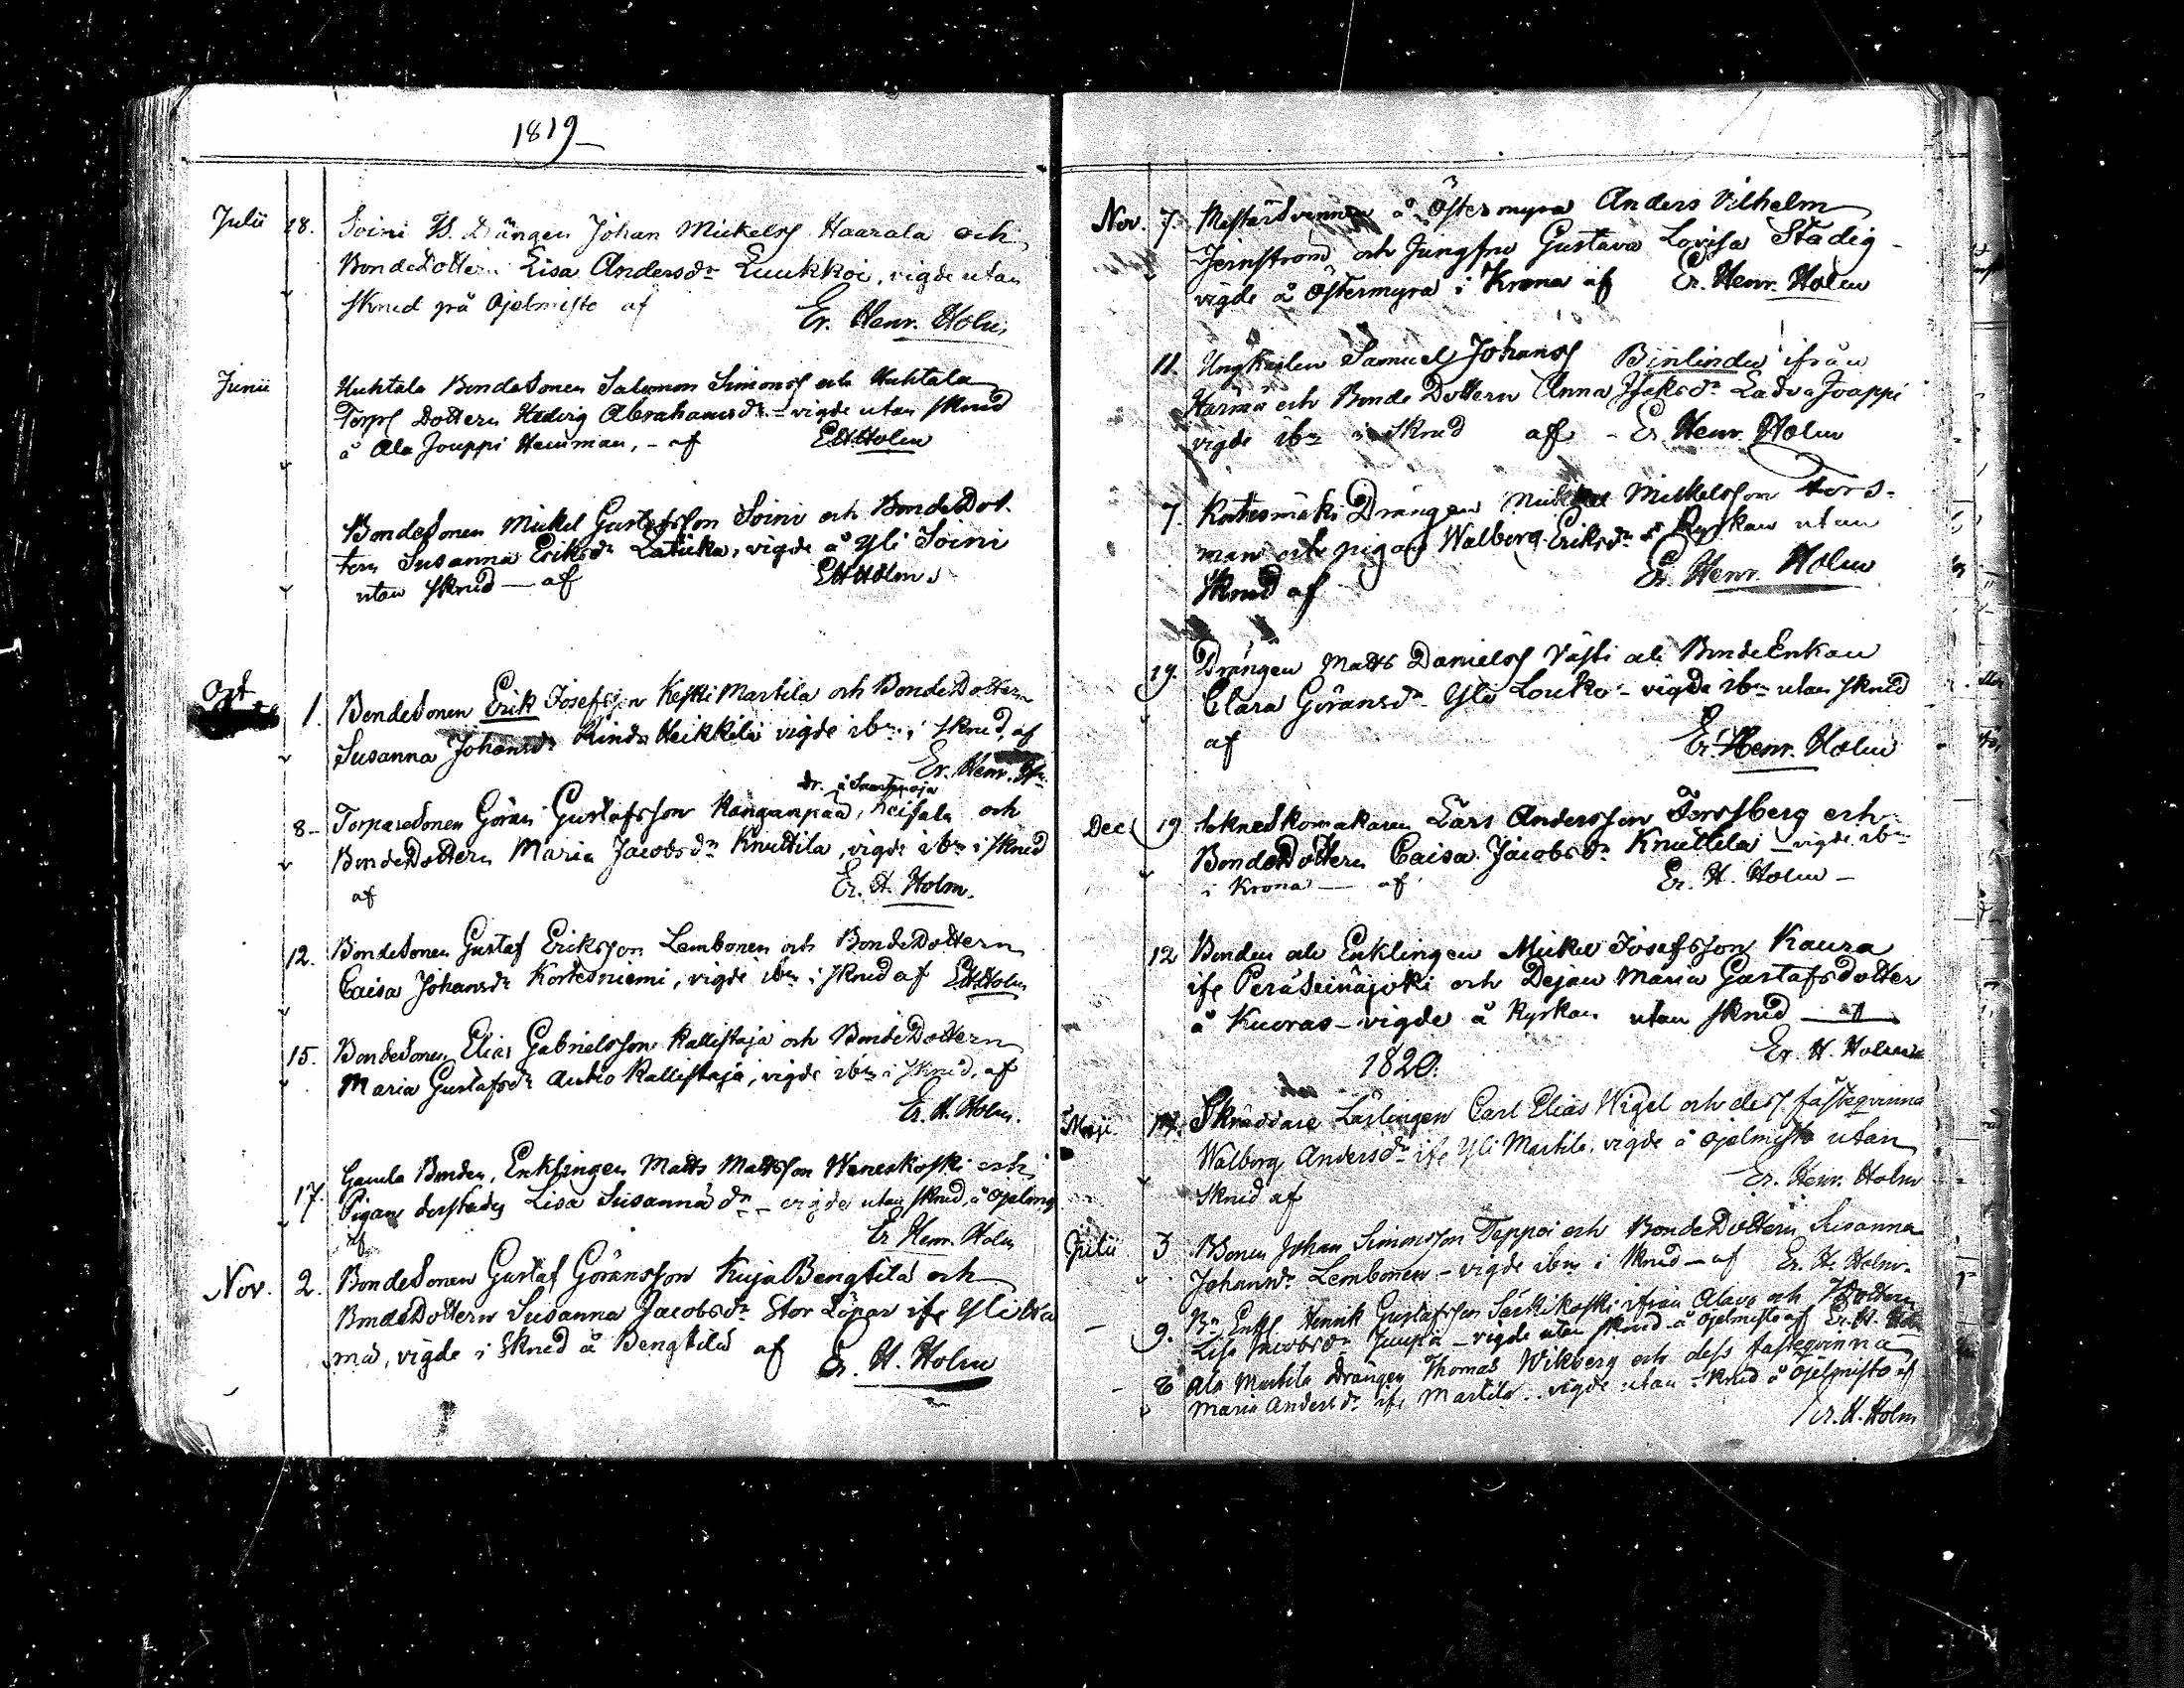 1819
Julii 18. Soini Bs. Drängen Johan Mickelss Haarala och
BondeDottern Lisa Andersdr Luukkoi, vigde utan
skrud på Ojelmisto af Er. Henr. Holm
Junii Huhtala BondeSonen Salomon Simonss och Huhtala
Torps Dottern Hedvig Abrahamsdr – vigde utan skrud
å Ala Jouppi Hemman, – af EHHolm
BondeSonen Mickel Gustafsson Soini och BondeDot-
tern Susanna Eriksdr Latukka, vigde å Yli Soini
utan skrud – af EHHolm
Oct. 1. BondeSonen Erik Josefsson Keski Martila och BondeDottern
Susanna Johansdr Rinda Heikkilä vigde ibm i skrud, af
Er. Henr.
dr. å
8– TorpareSonen Göran Gustafsson Kanganpää, och
BondeDottern Maria Jacobsdr Knuttila, vigde ibm i skrud
af Er. H. Holm.
12. BondeSonen Gustaf Eriksson Lembonen och BondeDottern
Caisa Johansdr Kortesniemi, vigde ibm i skrud af EHHolm
15. BondeSonen Elias Gabrielsson Kallistaja och BondeDottern
Maria Gustafsdr Autio Kallistaja, vigde ibm i skrud, af
Er. H. Holm.
Gamla Bonden, Enklingen Matts Mattsson Waneskoski och
17. Pigan derstädes Lisa Susannä dr – vigde utan skrud, å Ojelmisto
af Er Henr. Holm
Nov. 2. BondeSonen Gustaf Göransson Kuja Bengtila och
BondeDottern Susanna Jacobsdr Stor Löpar ifr Ylihär
mä, vigde i skrud å Bengtila af Er. H. Holm
Nov. 7. å Östermyra Anders Vilhelm
Jernström och Jungfru Gustava Lovisa Stadig –
vigde å Östermyra i Krona af Er. Henr. Holm
11. Ungkarlen Samuel Johanss Björlinder ifrån
Härmä och Bonde Dottern Anna Isaksdr Ladva Jouppi
vigde ibm i skrud aff – Er Henr. Holm
7. Kortesmäki Drängen Mickel Mickelsson Fors-
man och pigan Walborg Eriksdr å Kyrkan utan
skrud af Er. Henr. Holm
19. Drängen Matts Danielss Västi och BondeEnkan
Clara Göransdr Yli Louko – vigde ibm utan skrud
af Er. Henr. Holm
Dec. 19 Sokneskomakaren Lars Andersson Forssberg och
BondeDottern Caisa Jacobsdr Knuttila – vigde ibm
i Krona – af Er. H. Holm –
12 Bonden och Enklingen Mickel Josefsson Kaura
ifr Peräseinäjoki och Dejan Maria Gustafsdotter
å Kuoras – vigde å Kyrkan utan skrud – af
1820. Er. H. Holm
Maji 14. Skräddare Lärlingen Carl Elias Wigel och dess fästeqvinna
Walborg Andersdr ifr Yli Martila, vigde å Ojelmisto utan
skrud af Er. Henr. Holm
Julii 3 BSonen Johan Simonsson Teppoi och BondeDottern Susanna
Johansdr Lembonen – vigde ibm i skrud – af Er. H. Holm.
9. Bn Enkl Henrik Gustafsson Särkikoski ifrån Alavo och BDottern
Lisa Jacobsdr – vigde utan skrud å Ojelmisto af Er. H. Holm
Ala Martila Drängen Thomas Wikberg och dess fästeqvinna
Maria Andersdr ifr Martila – vigde utan skrud å Ojelmisto af
Er. H. Holm